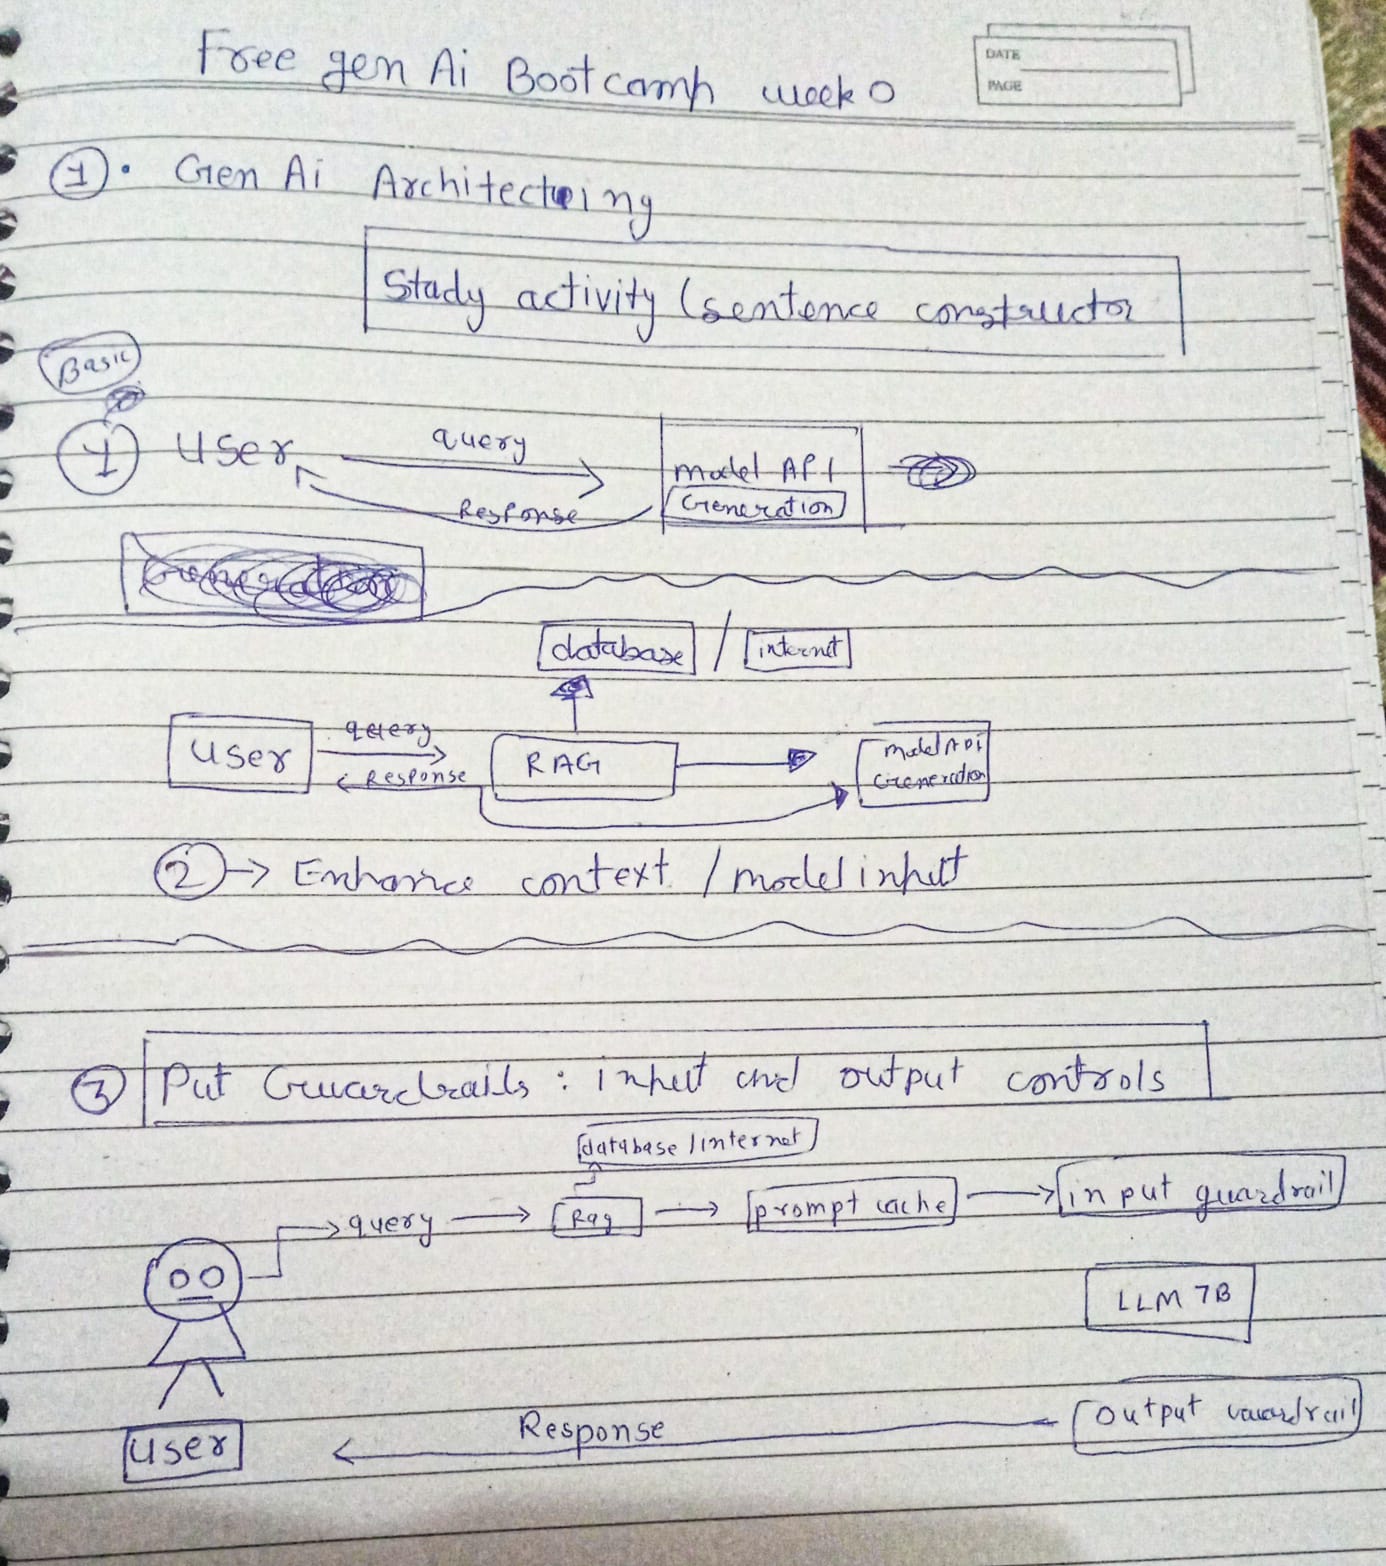 Free gen Ai Bootcamp week 0
DATE
PAGE
1. Gen Ai Architecting
Study activity (sentence constructor
Basic
1 User query model API
Response Generation
database / internet
User query RAG model API
Response Generation
2 → Enhance context / model input
3 Put Guardrails : input and output controls
database / internet
query Rag prompt cache input guardrail
LLM 7B
Response output guardrail
User